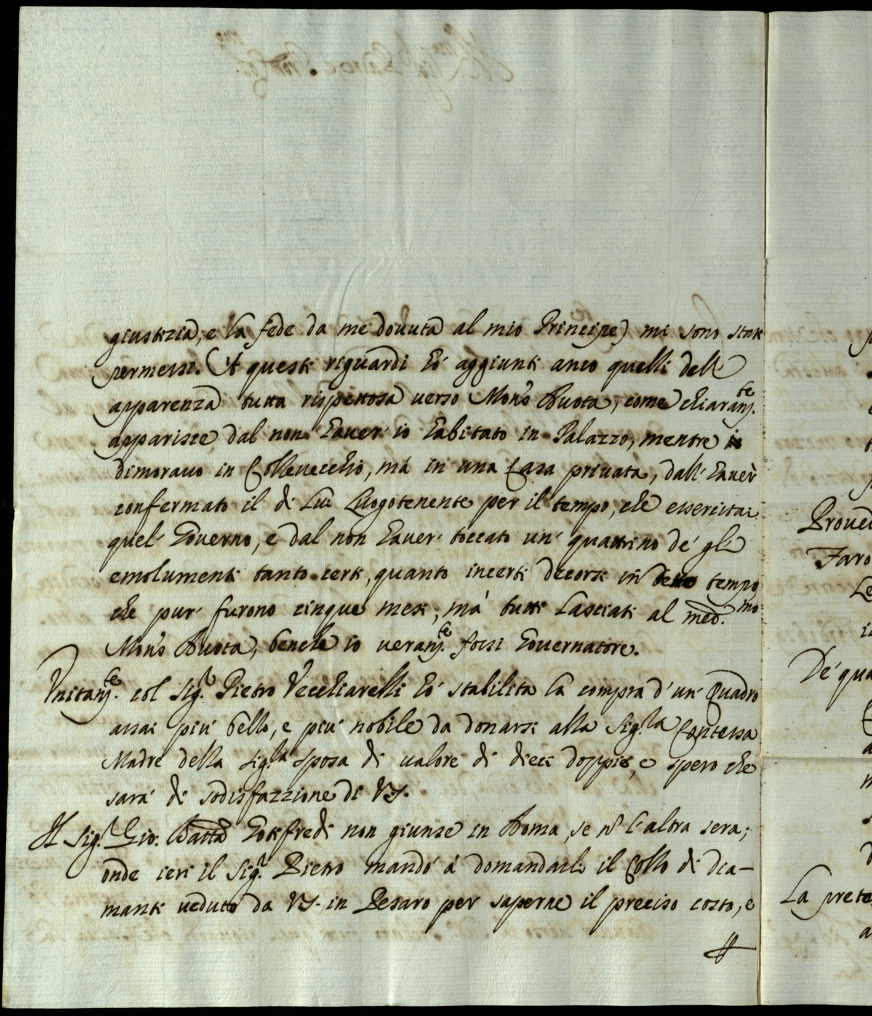 giustizia, e la fede da me douuta al mio Principe) mi sono state
permessi. A questi riguardi hò aggiunti anco quelli dell'
apparenza tutta rispettosa verso Mons.r Buota, come chiaram.te
apparisce dal non hauer io habitato in Palazzo, mentre io
dimorauo in Colleuecchio, mà in una Casa priuata, dall' hauer
confermato il di Lui Luogotenente per il tempo, che essercitai
quel Gouerno, e dal non hauer toccato un' quattrino de' gli
emolumenti tanto certi, quanto incerti decorsi in detto tempo
che pur furono cinque mesi, mà tutti Lasciati al med.mo
Mons.r Buota, benche io veram.te fossi Gouernatore.
Vnitam.te col Sig.r Pietro Vecchiarelli hò stabilita la compra d'un Quadro
assai più bello, e più nobile da donarsi alla Sig.ra Contessa
Madre della Sig.ra Sposa di valore di dieci doppie, e spero che
sarà di sodisfazzione di VS.
Il Sig.r Gio. Batta Gotifredi non giunse in Roma, se nõ l'altra sera;
onde ieri il Sig.r Pietro mandò à domandarli il Collo di dia-
manti veduto da VS. in Pesaro per saperne il preciso costo, e